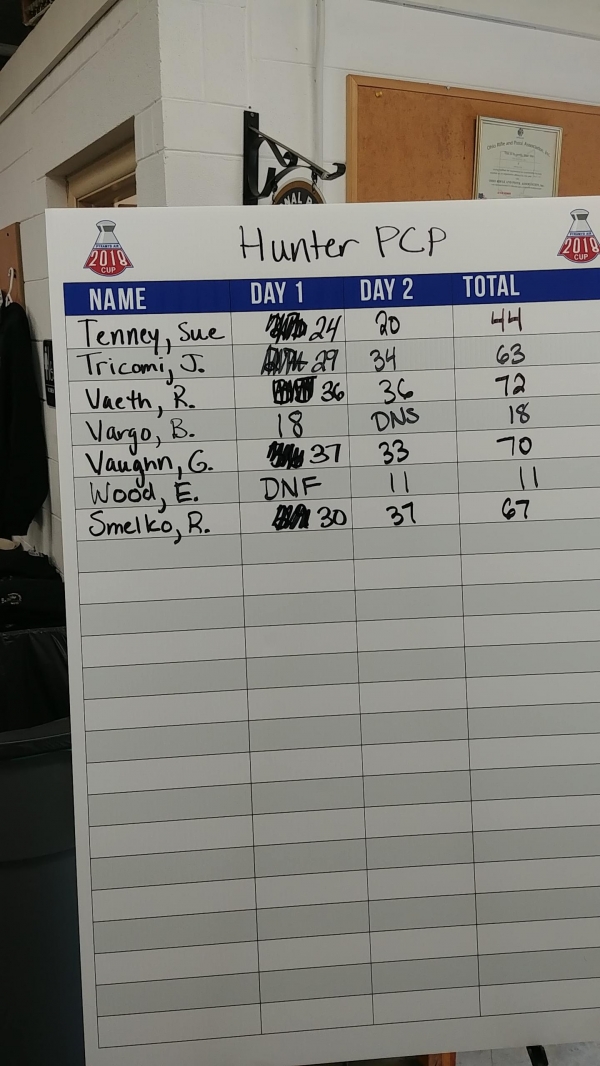 Hunter PCP
2018
CUP
2018
CUP
NAME DAY 1 DAY 2 TOTAL
Tenney, Sue 24 20 44
Tricomi, J. 29 34 63
Vaeth, R. 36 36 72
Vargo, B. 18 DNS 18
Vaughn, G. 37 33 70
Wood, E. DNF 11 11
Smelko, R. 30 37 67